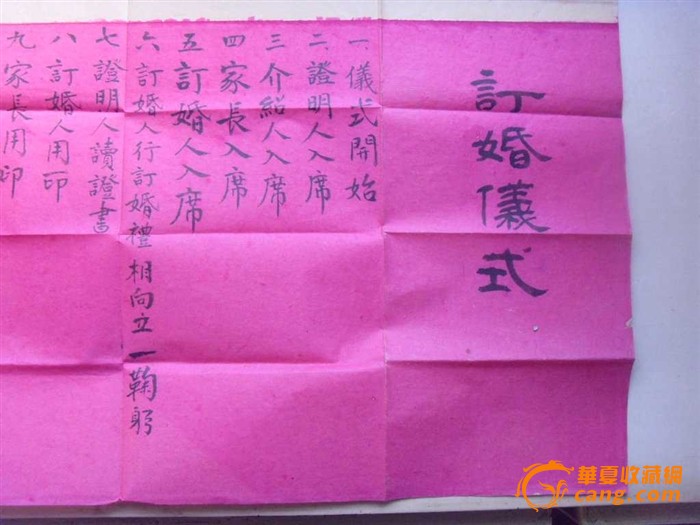 訂婚儀式
一儀式開始
二證明人入席
三介紹人入席
四家長入席
五訂婚人入席
六訂婚人行訂婚禮相向立一鞠躬
七證明人讀證書
八訂婚人用印
九家長用印
華夏收藏網
cang.com